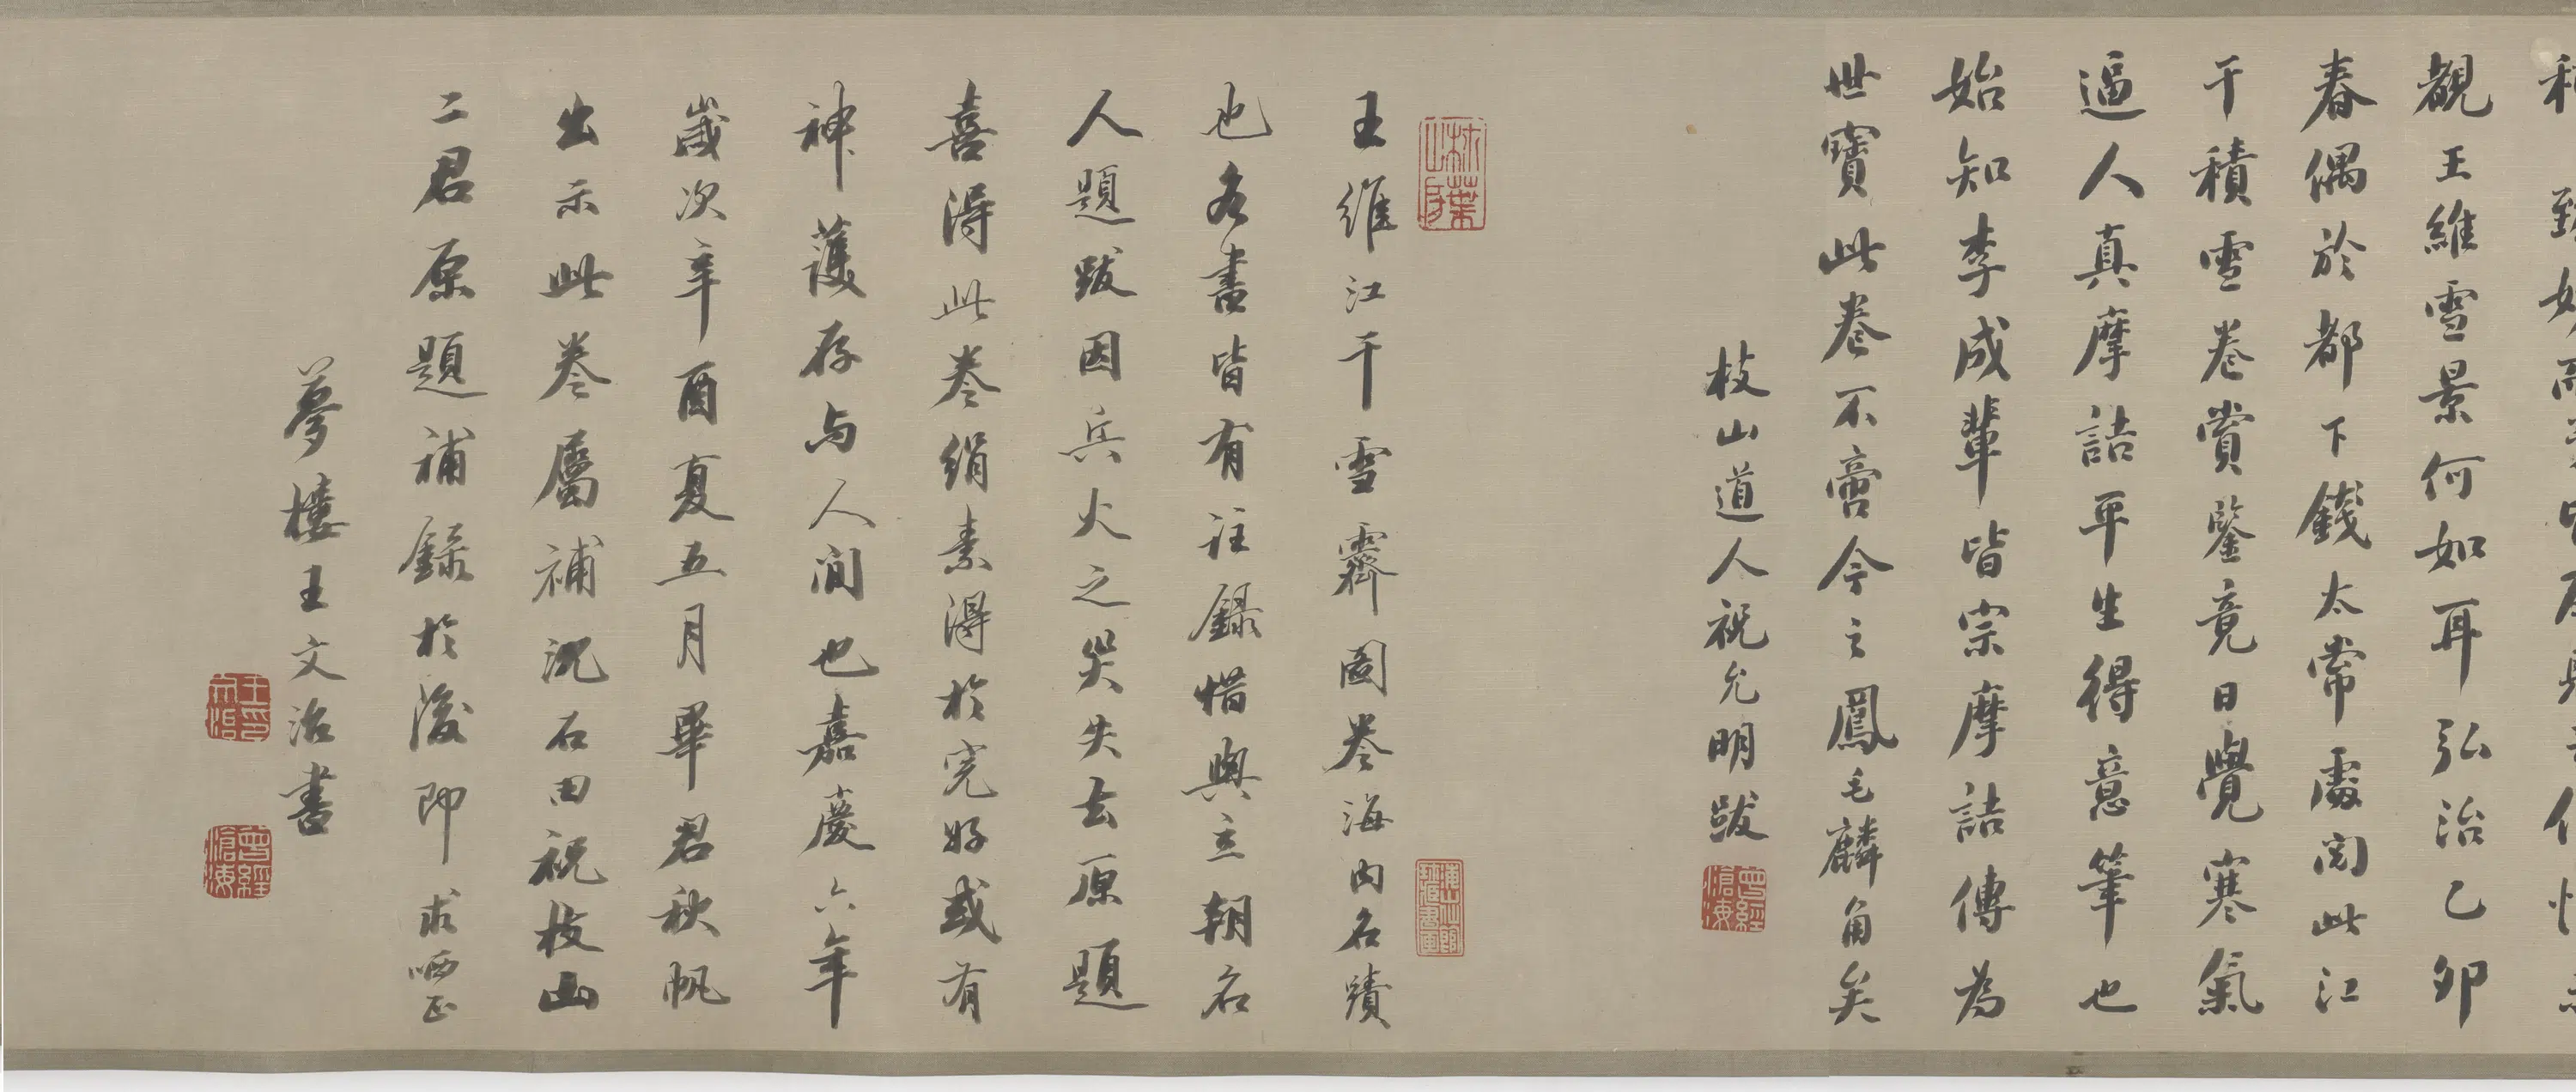 覩王維雪景何如耳弘治乙卯
春偶於都下錢太常處閱此江
干積雪卷賞鑒竟日覺寒氣
逼人真摩詰平生得意筆也
始知李成輩皆宗摩詰傳為
世寶此卷不啻今之鳳毛麟角矣
枝山道人祝允明跋
曾經滄海
王維江干雪霽圖卷海內名蹟
也各書皆有註錄惜與立朝名
人題跋因兵火之災失去原題
喜得此卷絹素得於完好或有
神護存与人間也嘉慶六年
歲次辛酉夏五月畢君秋帆
出示此卷屬補沈石田祝枝山
二君原題補錄於後即求哂正
夢樓王文治書
曾經滄海